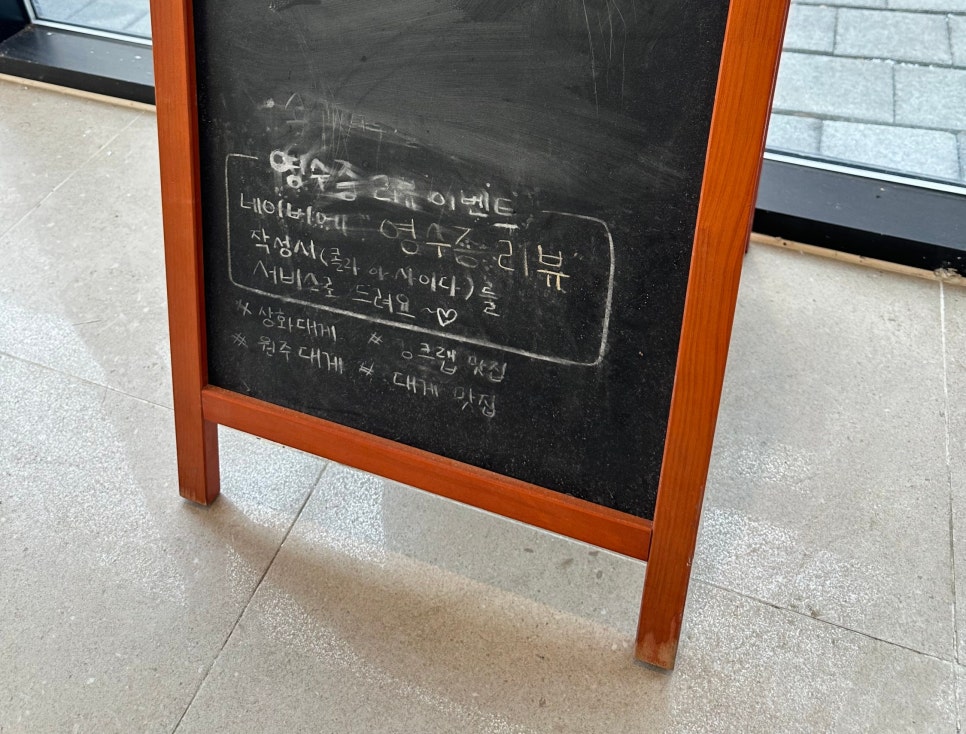 영수증 리뷰 이벤트
네이버에 "영수증 리뷰"
작성시 (콜라 or 사이다)를
서비스로 드려요~♡
# 상화대게 # 랍맛집
# 원주대게 # 대게 맛집